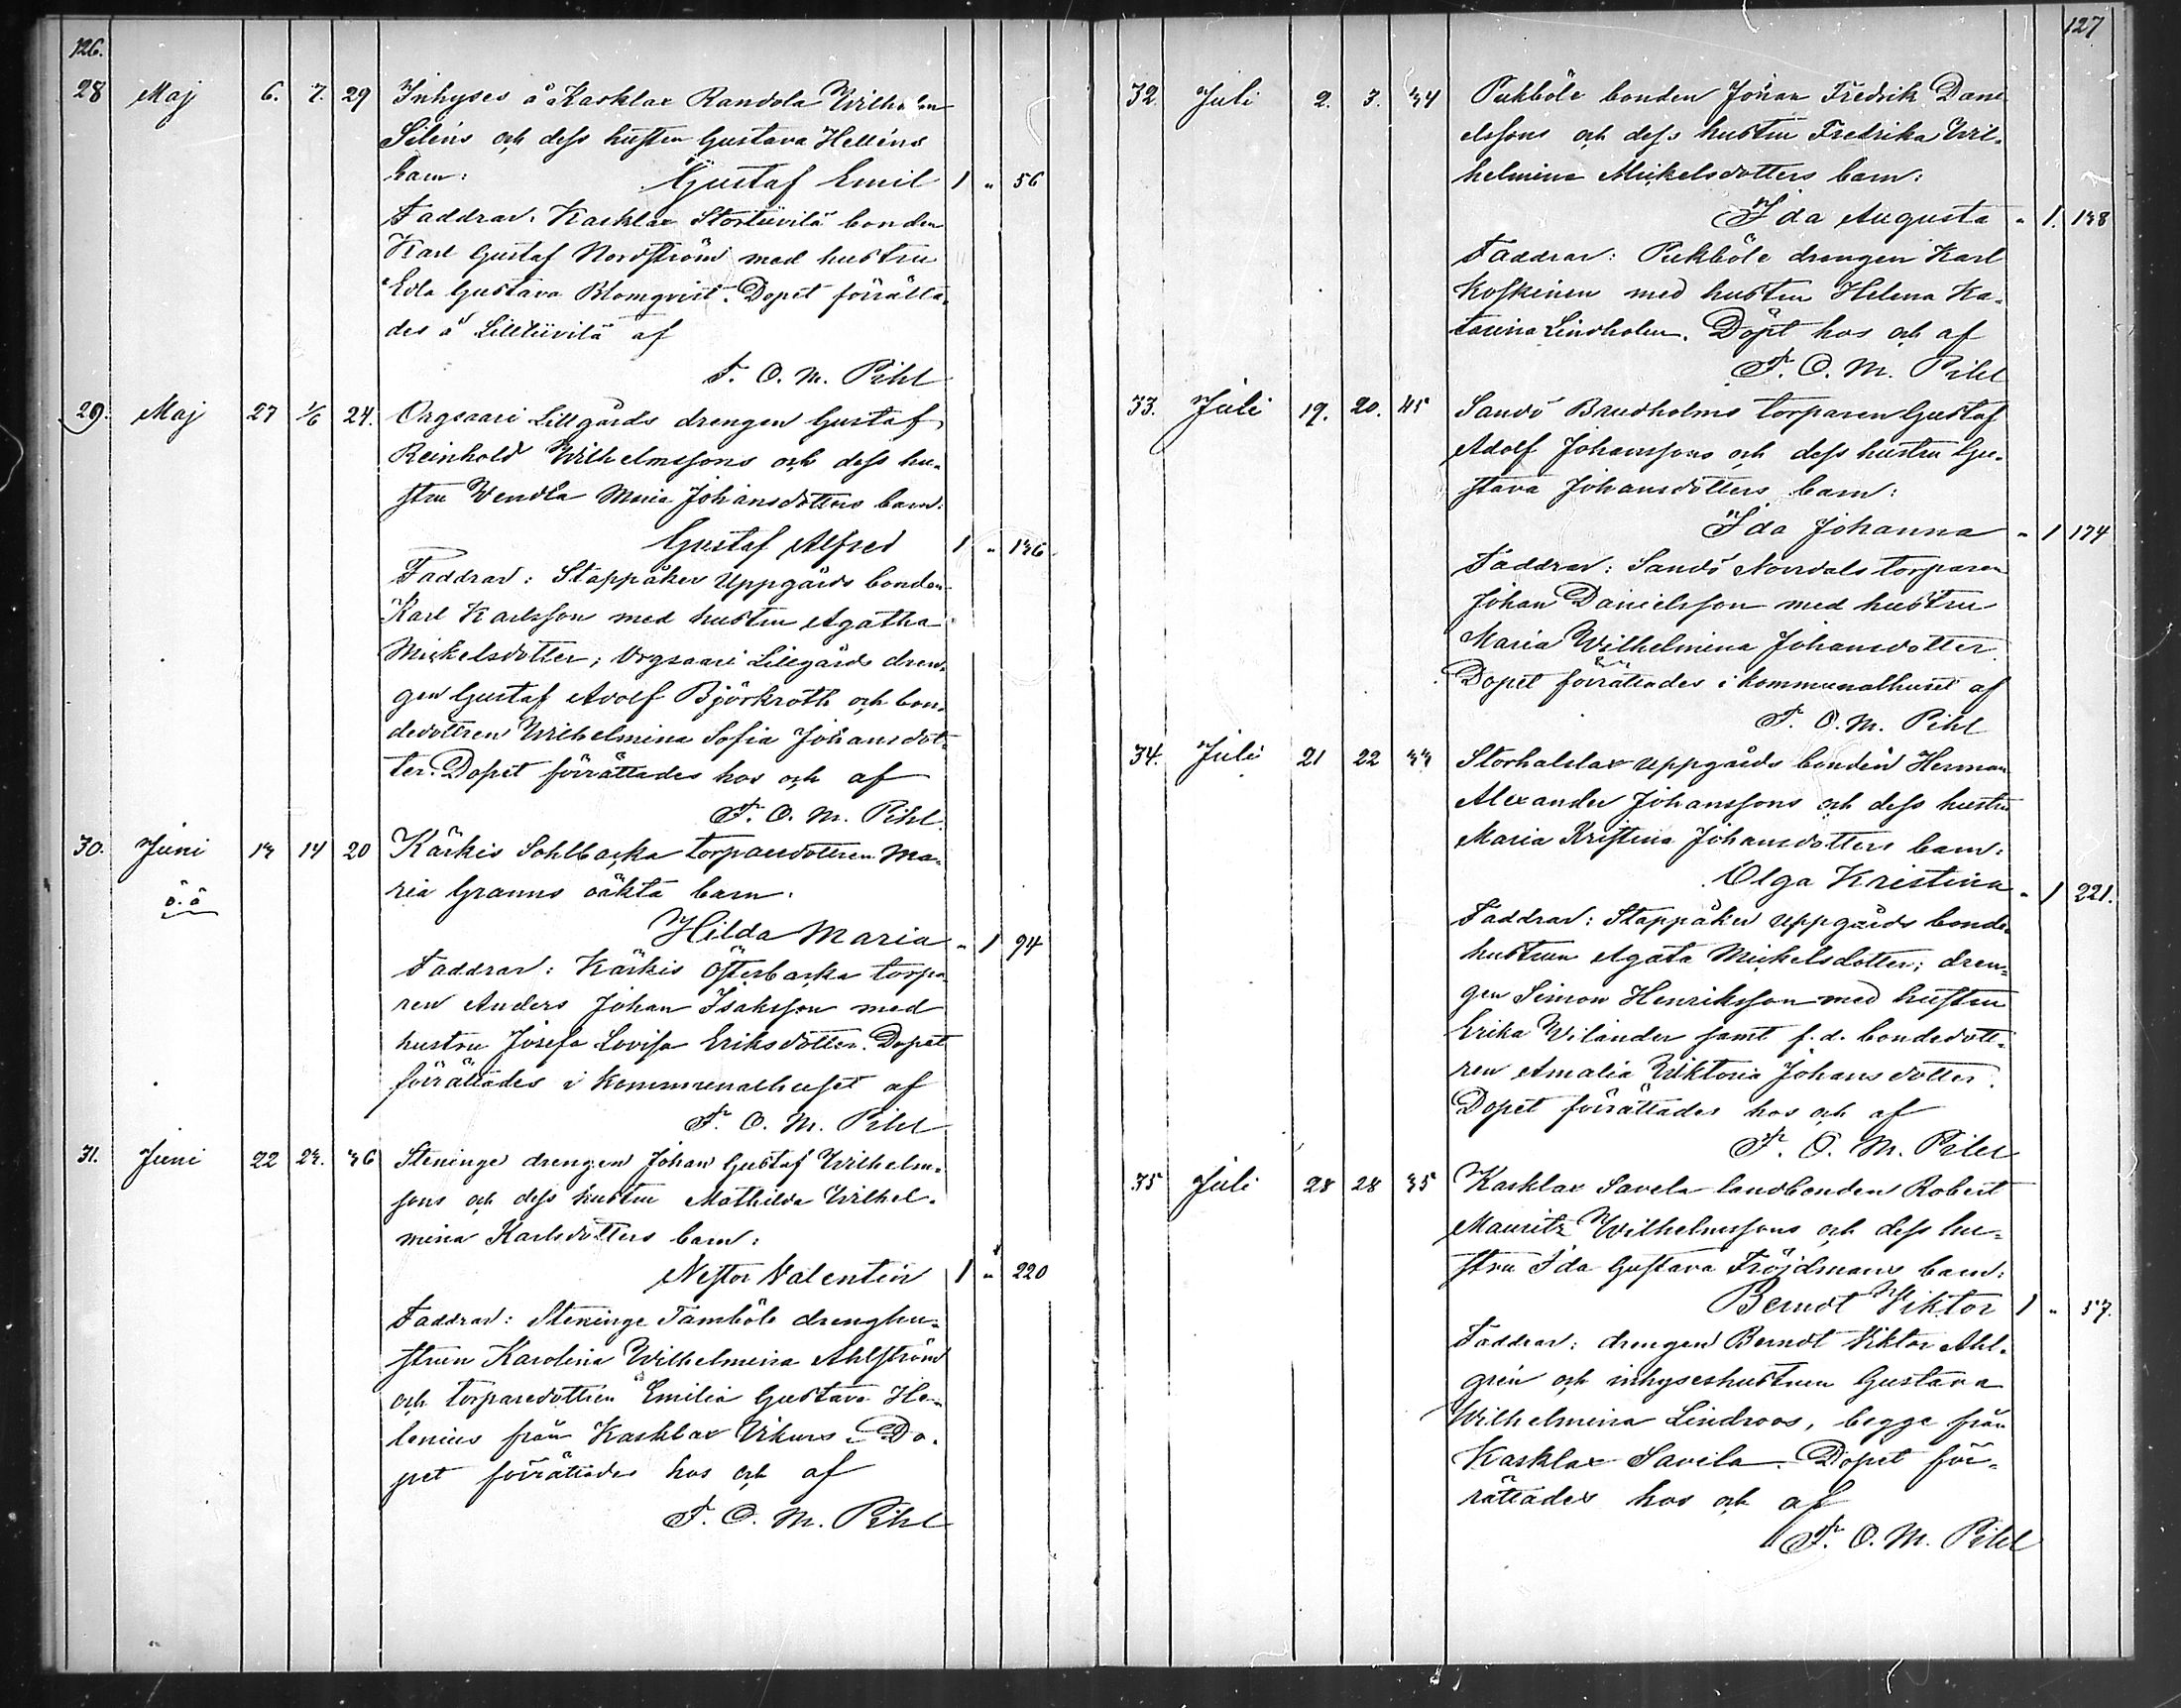 126.
28 Maj 6. 7. 29 Inhyses å Karklax Randola Wilhelm
Siléns och dess hustru Gustava Helléns
barn: Gustaf Emil 1 " 56
Faddrar: Karklax Stortiivilä bonden
Karl Gustaf Nordström med hustru
Edla Gustava Blomqvist. Dopet förrätta-
des å Lilltiivilä af
F. O. M. Pihl
29. Maj 27 1/6 24. Orgsaari Lillgårds drengen Gustaf
Reinhold Wilhelmssons och dess hu-
stru Wendla Maria Johansdotters barn:
Gustaf Alfred 1 " 136
Faddrar: Stappåker Uppgårds bonden
Karl Karlsson med hustru Agatha
Mickelsdotter; Orgsaari Lillgårds dren-
gen Gustaf Adolf Björkroth och bon-
dedottren Wilhelmina Sofia Johansdot-
ter. Dopet förrättades hos och af
F. O. M. Pihl.
30. Juni 13 14 20 Kärkis Sohlbacka torparedottren Ma-
o. ä ria Granns oäkta barn:
Hilda Maria " 1 94
Faddrar: Kärkis Österbacka torpa-
ren Anders Johan Isaksson med
hustru Josefa Lovisa Eriksdotter. Dopet
förrättades i kommunalhuset af
F. O. M. Pihl
31. Juni 22 23. 36 Steninge drengen Johan Gustaf Wilhelm-
sons och dess hustru Mathilda Wilhel-
mina Karlsdotters barn:
Nestor Valentin 1 " 220
Faddrar: Steninge Tamböle drenghu-
strun Karolina Wilhelmina Ahlström
och torparedottren Emilia Gustava He-
lenius från Karklax Vikars. Do-
pet förrättades hos och af
F. O. M. Pihl
127
32. Juli 2. 3. 34 Pukböle bonden Johan Fredrik Dani
elssons och dess hustru Fredrika Wil-
helmina Mickelsdotters barn:
Ida Augusta " 1. 138
Faddrar: Pukböle drengen Karl
Koskinen med hustru Helena Ka-
tarina Lindholm. Döpt hos och af
F. O. M. Pihl
33. Juli 19. 20. 45 Sandö Brudholms torparen Gustaf
Adolf Johanssons och dess hustru Gu-
stava Johansdotters barn:
Ida Johanna " 1 174
Faddrar: Sandö Norrdals torparen
Johan Danielsson med hustru
Maria Wilhelmina Johansdotter.
Dopet förrättades i kommunalhuset af
F. O. M. Pihl
34. Juli 21 22 33 Storhalslax uppgårds bonden Herman
Alexander Johanssons och dess hustru
Maria Kristina Johansdotters barn:
Olga Kristina " 1 221.
Faddrar: Stappåker Uppgårds bonde-
hustrun Agata Mickelsdotter; dren-
gen Simon Henriksson med hustru
Erika Vilander samt f. d. bondedott-
ren Amalia Viktoria Johansdotter.
Dopet förrättades hos och af
F. O. M. Pihl
35 Juli 28 28 35 Karklax Savela landbonden Robert
Mauritz Wilhelmssons och dess hu-
stru Ida Gustava Fröjdmans barn:
Berndt Viktor 1 " 57.
Faddrar: drengen Berndt Viktor Ahl-
grén och inhyseshustrun Gustava
Wilhelmina Lindroos, begge från
Karklax Savila. Dopet för-
rättades hos och af
F. O. M. Pihl